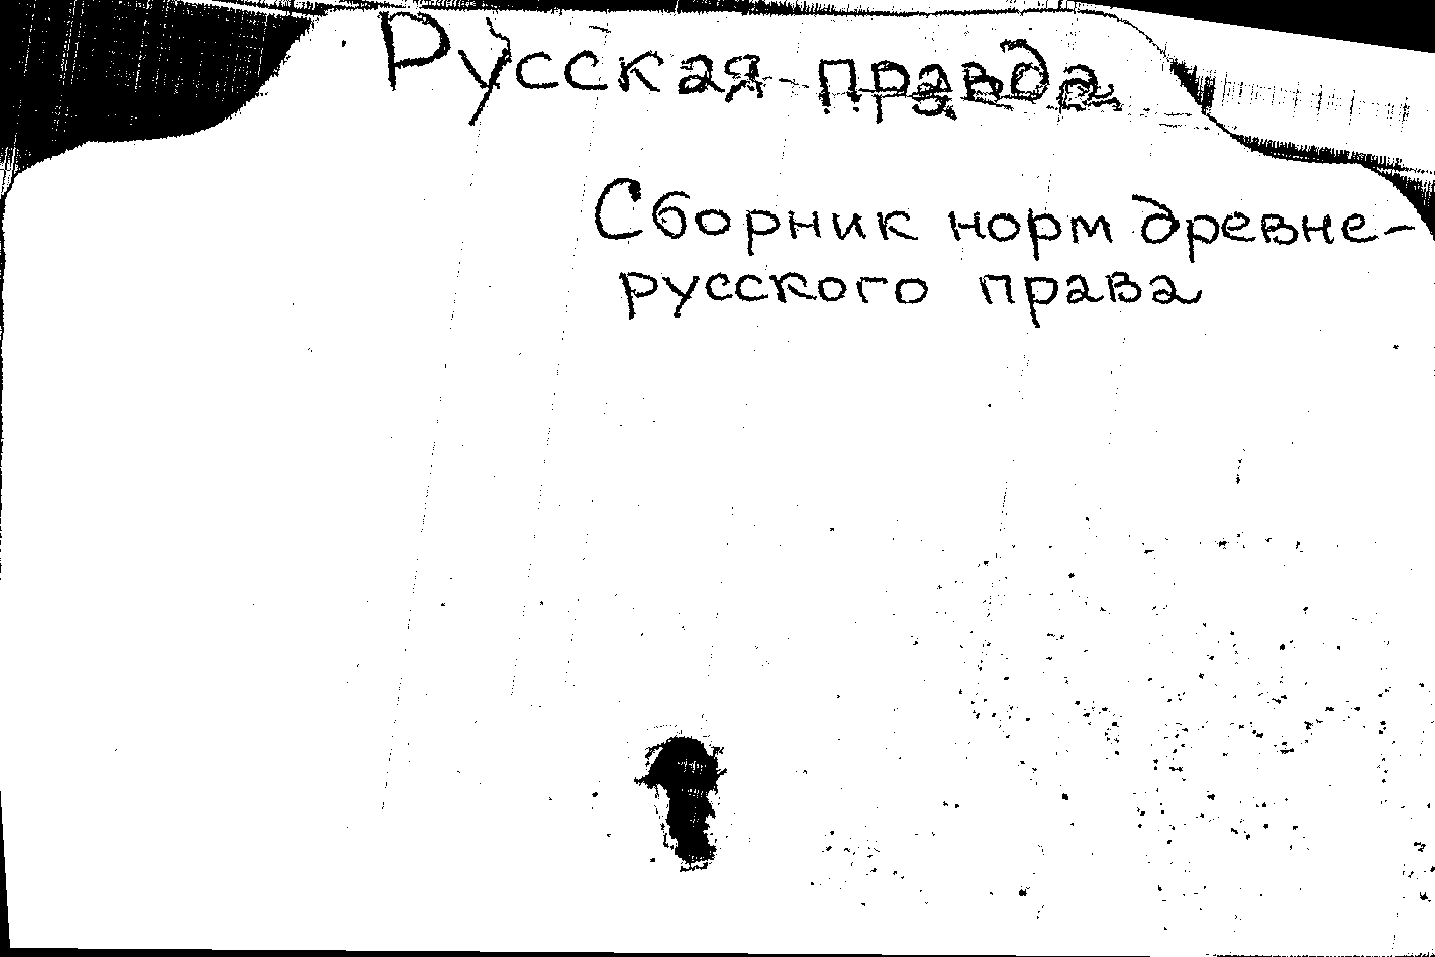 Русская правда
Сборник норм древне-
русского права